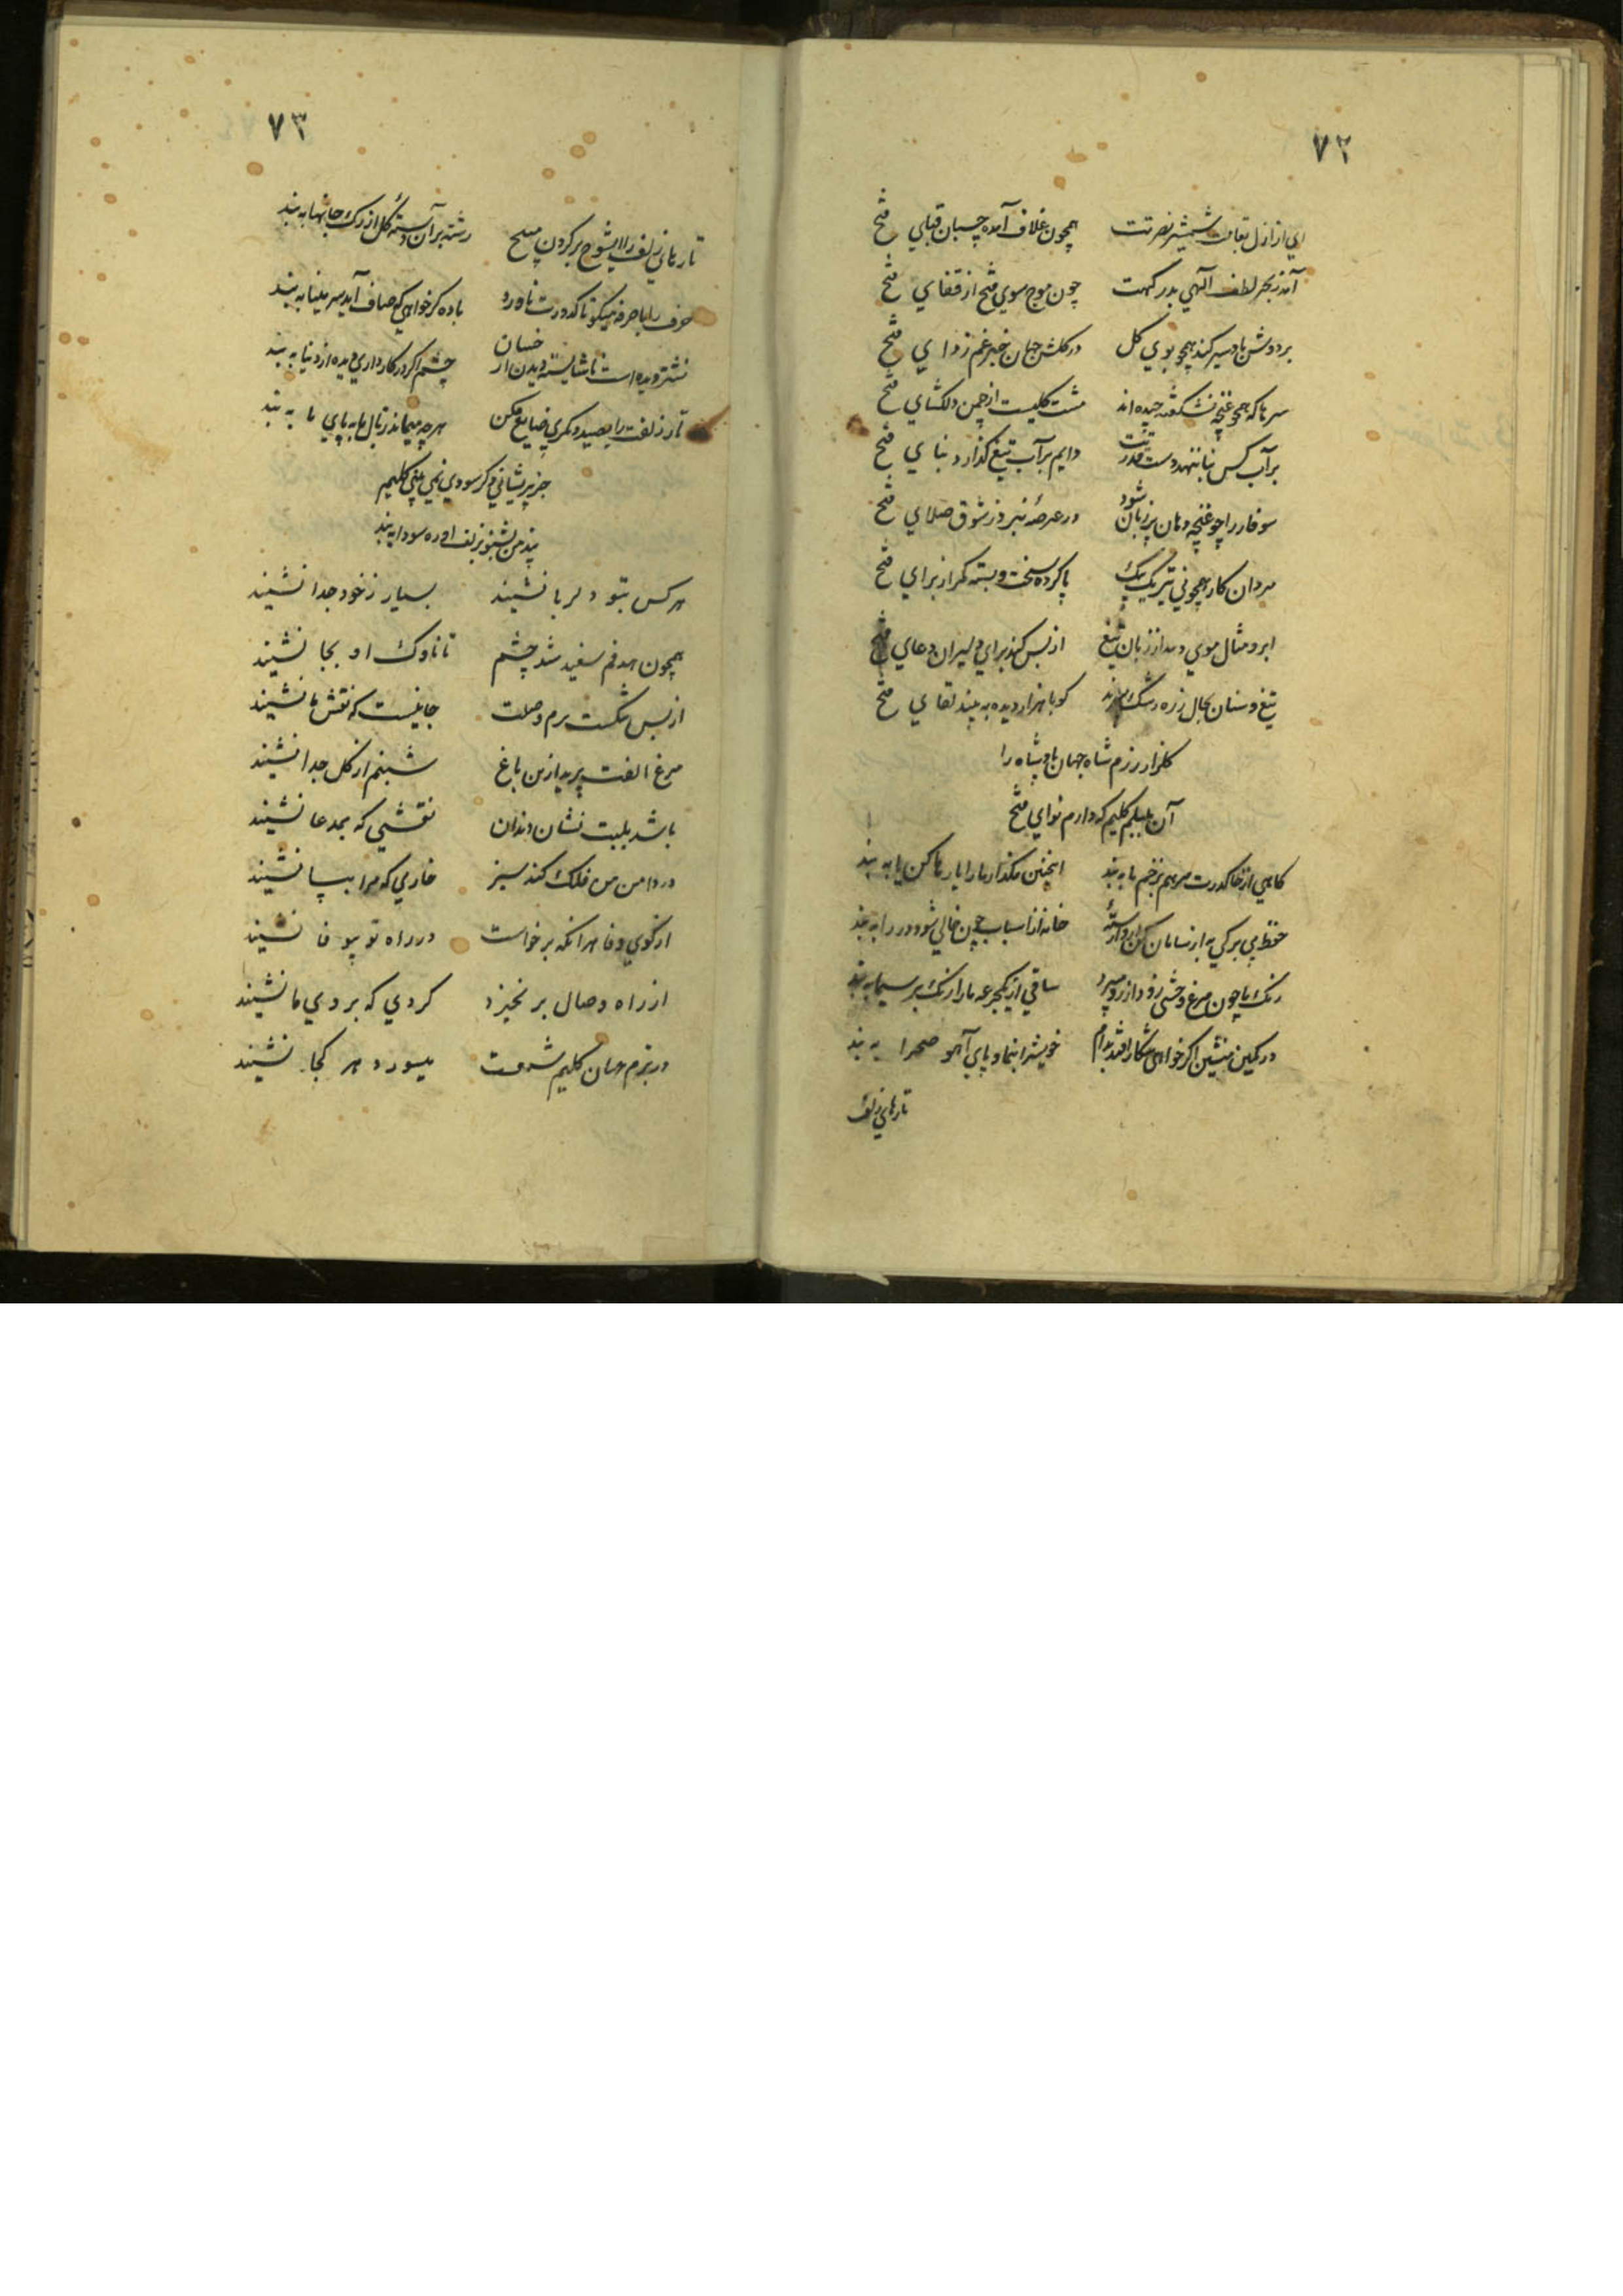 ۷۲
اي از ازل بقامت شمشیر نصرتت همچون غلاف آمده چسبان قبای فتح
آمد ز بحر لطف آلهي بدرگهت چون موج سوي فتح از قفاي فتح
بر دوش باد سیر کند همچو بوي کل در کلشن جهان خبر غم زداي فتح
سرها که همچو غنچه نشکفته چیده اند مشت کلیست از چمن دلکشاي فتح
بر آب کس بنا ننهد دست قدرتت دایم بر آب تیغ کذارد بناي فتح
سوفار را چو غنچه دهان پر زبان شود در عرصهٔ نبرد ز شوق صلاي فتح
مردان کار همچو ني تیر یک بیک پا کرده سخت و بسته کمر از براي فتح
ابرو مثال موي دمد از زبان تیغ از بس کند براي دلیران دعاي فتح
تیغ و سنان بحال زره رشک میبرند کو با هزار دیده به بیند لقاي فتح
کلزار رزم شاه جهان بادشاه را
آن بلبلم کلیم که دارم نواي فتح
کاهي از خاک درت مرهم بزخم ما به بند اینچنین مکذار ما را یا رها کن یا به بند
حفظ بي برکي به از سامان کن ار وارستهٔ خانه از اسباب چون خالي شود در را به بند
رنک ما چون مرغ وحشي زود از رو میپرد ساقي از یکجرعه ما را رنک بر سیما به بند
در کمین منشین اکر خواهي شکار افتد بدام خویش را بنما و پاي آهو صحرا به بند
تارهاي زلف
۷۳
تارهاي زلف را ایشوخ بر کردن مپیچ رشته بر آن دستهٔ کل از رک جانها به بند
حرف را با حرفه میکو تا کدورت ناورد باده کر خواهي که صاف آید سر مینا به بند
نشتر دیده است ناشایسته دیدن از خسان چشم اکر در کار داري دیده از دنیا به بند
تار زلفت را بصید دیکري ضایع مکن هر چه میماند ز بال ما به پاي ما به بند
جز پریشاني دکر سودي نمي بیني کلیم
پند من بشنو بزلف او ره سودا به بند
هر کس بتو دلربا نشیند بسیار ز خود جدا نشیند
همچون هدفم سفید شد چشم تا ناوک او بجا نشیند
از بس شکست بزم وصلت جا نیست که نقش ما نشیند
مرغ الفت پرید ازین باغ شبنم از کل جدا نشیند
باشد بلبت نشان دندان نقشي که بمدعا نشیند
در دامن من فلک کند سبز خاري که مرا بپا نشیند
از کوي وفا هر انکه برخاست در راه تو بیوفا نشیند
از راه وصال بر نخیزد کردي که بروي ما نشیند
در بزم جهان کلیم شمعت میسوزد هر کجا نشیند